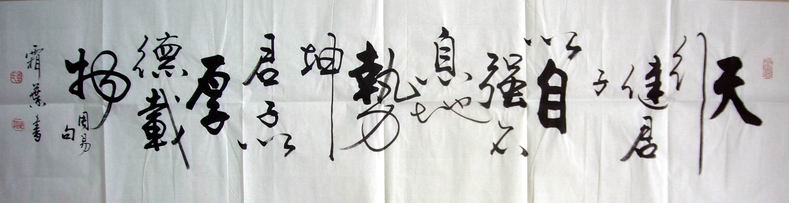 天
行
健君
子
以自
强不
息地
勢
坤
君子以
厚
德載
物
周易
句
霜葉書